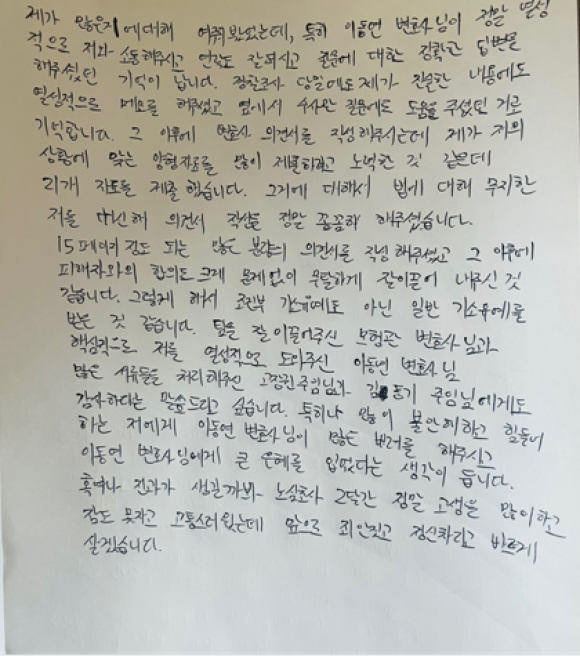 제가 많은것에대해 여쭤 봤었는데, 특히 이동연 변호사님이 정말 열성
적으로 저와 소통해주시고 연락도 잘되시고 질문에 대한 정확한 답변을
해주셨던 기억이 납니다. 경찰조사 당일에도 제가 진술한 내용에도
열성적으로 메모를 해주셨고 옆에서 수사관 질문에도 도움을 주셨던 거로
기억합니다. 그 이후에 변호사 의견서를 작성해주시는데 제가 저의
상황에 맞는 양형자료를 많이 제출하려고 노력한 것 같은데
21개 자료를 제출 했습니다. 그거에 대해서 법에 대해 무지한
저를 대신해 의견서 작성을 정말 꼼꼼히 해주셨습니다.
15페이지 정도 되는 많은 분량의 의견서를 작성 해주셨고 그 이후에
피해자와의 합의도 크게 문제없이 원활하게 잘이끌어 내주신 것
같습니다. 그렇게 해서 조건부 기소유예도 아닌 일반 기소유예를
받은 것 같습니다. 팀을 잘 이끌어주신 보형관 변호사님과
핵심적으로 저를 열성적으로 도와주신 이동연 변호사님
많은 서류들을 처리해주신 고장권주임님과 김동기 주임님에게도
감사하다는 말씀드리고 싶습니다. 특히나 많이 불안해하고 힘들어
하는 저에게 이동연 변호사님이 많은 배려를 해주시고
이동연 변호사님에게 큰 은혜를 입었다는 생각이 듭니다.
혹여나 전과가 생길까봐 노심초사 2달간 정말 고생을 많이하고
잠도 못자고 고통스러웠는데 앞으로 죄안짓고 정신차리고 바르게
살겠습니다.